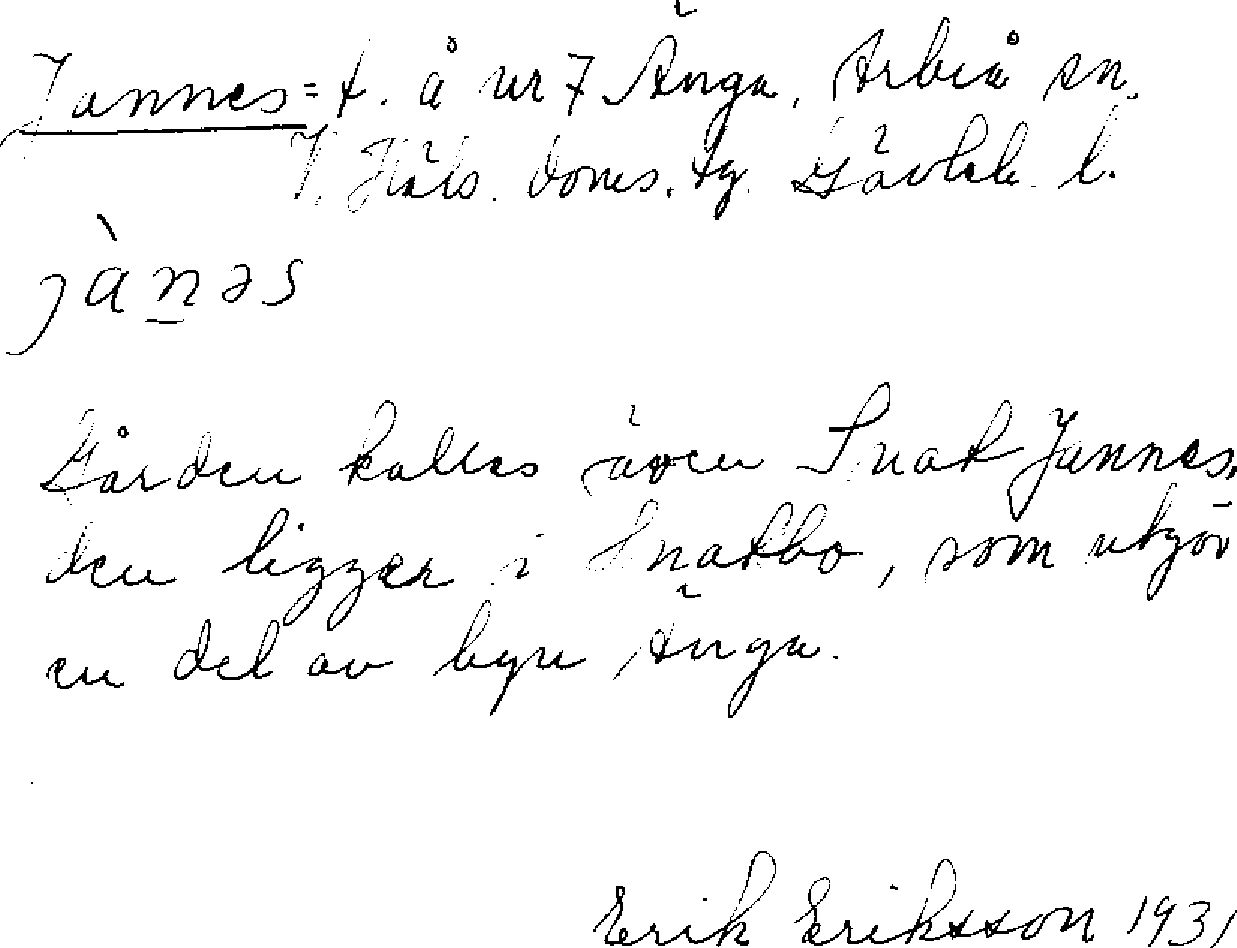 Jannes = t. å nr 7 Änga, Arbrå sn.
V. Häls. doms. tg. Gävleb. l.
jànəs
Gården kallas även Snat Jannes,
den ligger i Snatbo, som utgör
en del av byn Änga.
Erik Eriksson 1931